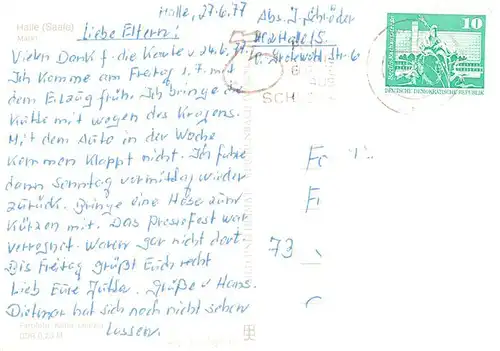 Halle (Saale)
Markt
Halle, 27.6.77
Liebe Eltern!
Vielen Dank f. die Karte v. 24.6.77.
Ich komme am Freitag 1.7. mit
dem Eilzug früh. Ich bringe die
Kutte mit wegen des Kragens.
Mit dem Auto in der Woche
kommen klappt nicht. Ich fahre
dann Sonntag vormittag wieder
zurück. Bringe eine Hose zum
Kürzen mit. Das Pressefest war
verregnet. Waren gar nicht dort
Bis Freitag grüßt Euch recht
lieb Eure Jutta. Grüße v. Hans.
Dietmar hat sich noch nicht sehen
lassen.
Abs. J. Schröder
402 Halle/S.
Str. 6
SCH
10
DEUTSCHE DEMOKRATISCHE REPUBLIK
Fa
F
73